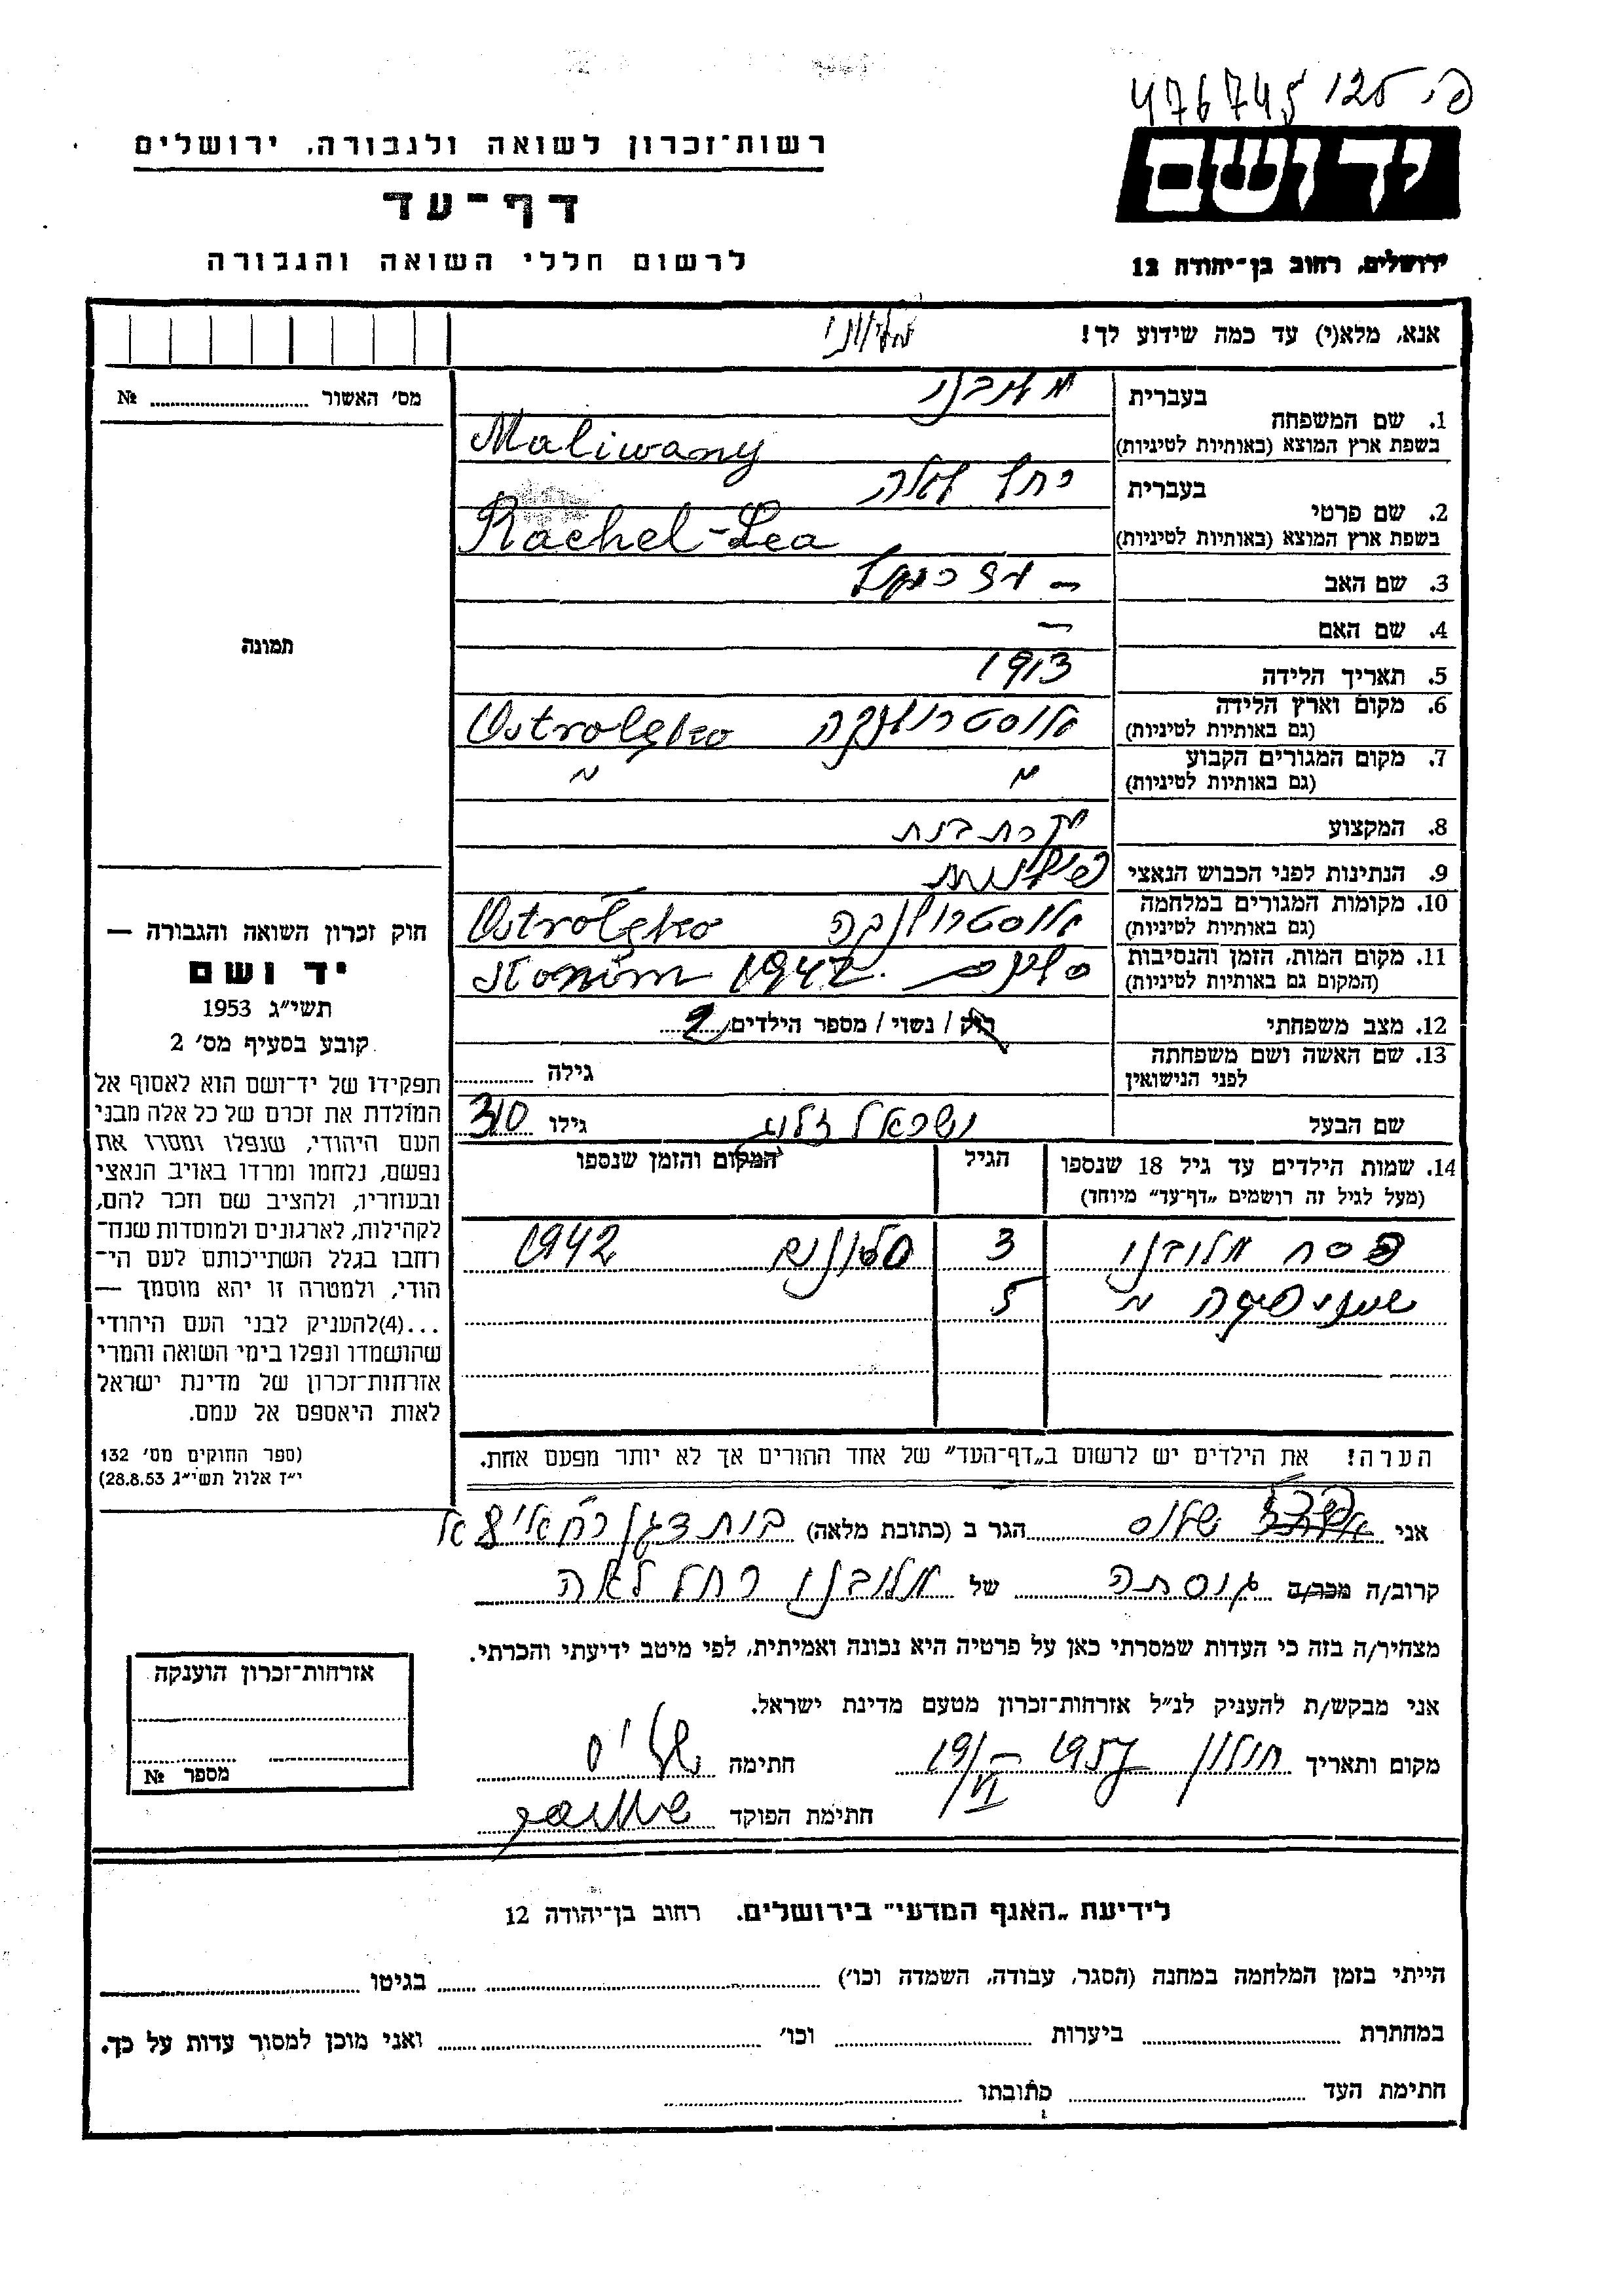 476745 125
רשות־זכרון לשואה ולגבורה, ירושלים
דף־עד
לרשום חללי השואה והגבורה
ידושם
ירושלים, רחוב בן־יהודה 12
אנא, מלא(י) עד כמה שידוע לך!
מס׳ האשור № 
תמונה
חוק זכרון השואה והגבורה —
יד ושם
תשי״ג 1953
קובע בסעיף מס׳ 2
תפקידו של יד־ושם הוא לאסוף אל
המולדת את זכרם של כל אלה מבני
העם היהודי, שנפלו ומסרו את
נפשם, נלחמו ומרדו באויב הנאצי
ובעוזריו, ולהציב שם וזכר להם,
לקהילות, לארגונים ולמוסדות שנח־
רחבו בגלל השתייכותם לעם הי־
הודי, ולמטרה זו יהא מוסמך —
...(4)להעניק לבני העם היהודי
שהושמדו ונפלו בימי השואה והמרי
אזרחות־זכרון של מדינת ישראל
לאות היאספם אל עמם.
(ספר החוקים מס׳ 132
י״ז אלול תשי״ג 28.8.53)
בעברית
1. שם המשפחה
בשפת ארץ המוצא (באותיות לטיניות) Maliwany
בעברית רחל לאה
2. שם פרטי
בשפת ארץ המוצא (באותיות לטיניות) Rachel-Lea
3. שם האב —
4. שם האם —
5. תאריך הלידה 1913
6. מקום וארץ הלידה אוסטרולנקה Ostrolęko
(גם באותיות לטיניות)
7. מקום המגורים הקבוע " "
(גם באותיות לטיניות)
8. המקצוע
9. הנתינות לפני הכבוש הנאצי פולנית
10. מקומות המגורים במלחמה אוסטרולנקה Ostrolęko
(גם באותיות לטיניות)
11. מקום המות, הזמן והנסיבות 1942 Slonim
(המקום גם באותיות לטיניות)
12. מצב משפחתי רוק / נשוי / מספר הילדים 2
13. שם האשה ושם משפחתה
לפני הנישואין גילה
שם הבעל ישראל זליג גילו
14. שמות הילדים עד גיל 18 שנספו הגיל המקום והזמן שנספו
(מעל לגיל זה רושמים „דף־עד״ מיוחד)
פסח מלובני 3 סלונים 1942
" 5
הערה! את הילדים יש לרשום ב„דף־העד״ של אחד ההורים אך לא יותר מפעם אחת.
אני שלום הגר ב (כתובת מלאה) בית דגן
קרוב/ה מכר/ה גיסתה של מלובני רחל לאה
מצהיר/ה בזה כי העדות שמסרתי כאן על פרטיה היא נכונה ואמיתית, לפי מיטב ידיעתי והכרתי.
אני מבקש/ת להעניק לנ״ל אזרחות־זכרון מטעם מדינת ישראל.
מקום ותאריך חולון 1957 19/VI חתימה
חתימת הפוקד
אזרחות־זכרון הוענקה
מספר №
לידיעת „האגף המדעי״ בירושלים. רחוב בן־יהודה 12
הייתי בזמן המלחמה במחנה (הסגר, עבודה, השמדה וכו׳) בגיטו
במחתרת ביערות וכו׳ ואני מוכן למסור עדות על כך.
חתימת העד כתובתו